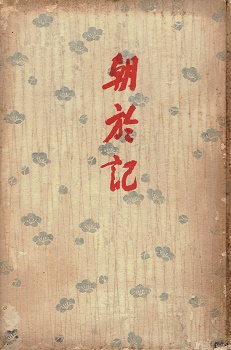 朝於記